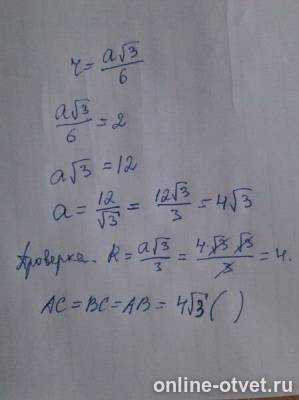 r = a√3/6
a√3/6 = 2
a√3 = 12
a = 12/√3 = 12√3/3 = 4√3
Проверка. R = a√3/3 = 4·√3·√3/3 = 4.
AC = BC = AB = 4√3 ( )
online-otvet.ru